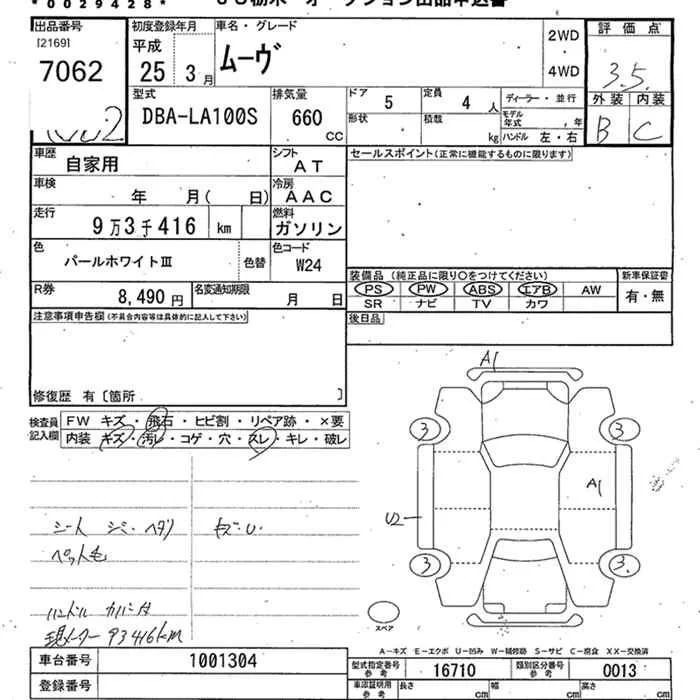 *0029428*
出品番号 初度登録年月 車名・グレード 2WD 評価点
[2169] 平成 ムーヴ 3.5
7062 25 3月 4WD 外装 内装
型式 排気量 ドア 定員 ディーラー・並行 B C
DBA-LA100S 660 CC 5 4人 モデル年式 年
形状 積数 kg ハンドル 左・右
車歴 自家用 シフト AT セールスポイント(正常に機能するものに限ります)
車検 年 月( 日) 冷房 AAC
走行 9万3千416 km 燃料 ガソリン
色 パールホワイトⅢ 色替 色コード W24
装備品(純正品に限り○をつけてください) 新車保証書
R券 8,490円 名変通知期限 月 日 PS PW ABS エアB AW 有・無
SR ナビ TV カワ
注意事項申告欄(不具合内容等は具体的に記入して下さい) 後日品
修復歴 有〔箇所 〕
検査員記入欄 FW キズ・飛石・ヒビ割・リペア跡・×要
内装 キズ・汚レ・コゲ・穴・スレ・キレ・破レ
A1
3 3
A1
U2
3 3
シート シミ・ヘタリ
ペット毛
ハンドル
現メーター 93416km
スペア
A-キズ E-エクボ U-凹み W-補修跡 S-サビ C-腐食 XX-交換済
車台番号 1001304 型式指定番号 参考 16710 類別区分番号 参考 0013
登録番号 車庫証明用 参考 長さ cm 幅 cm 高さ cm